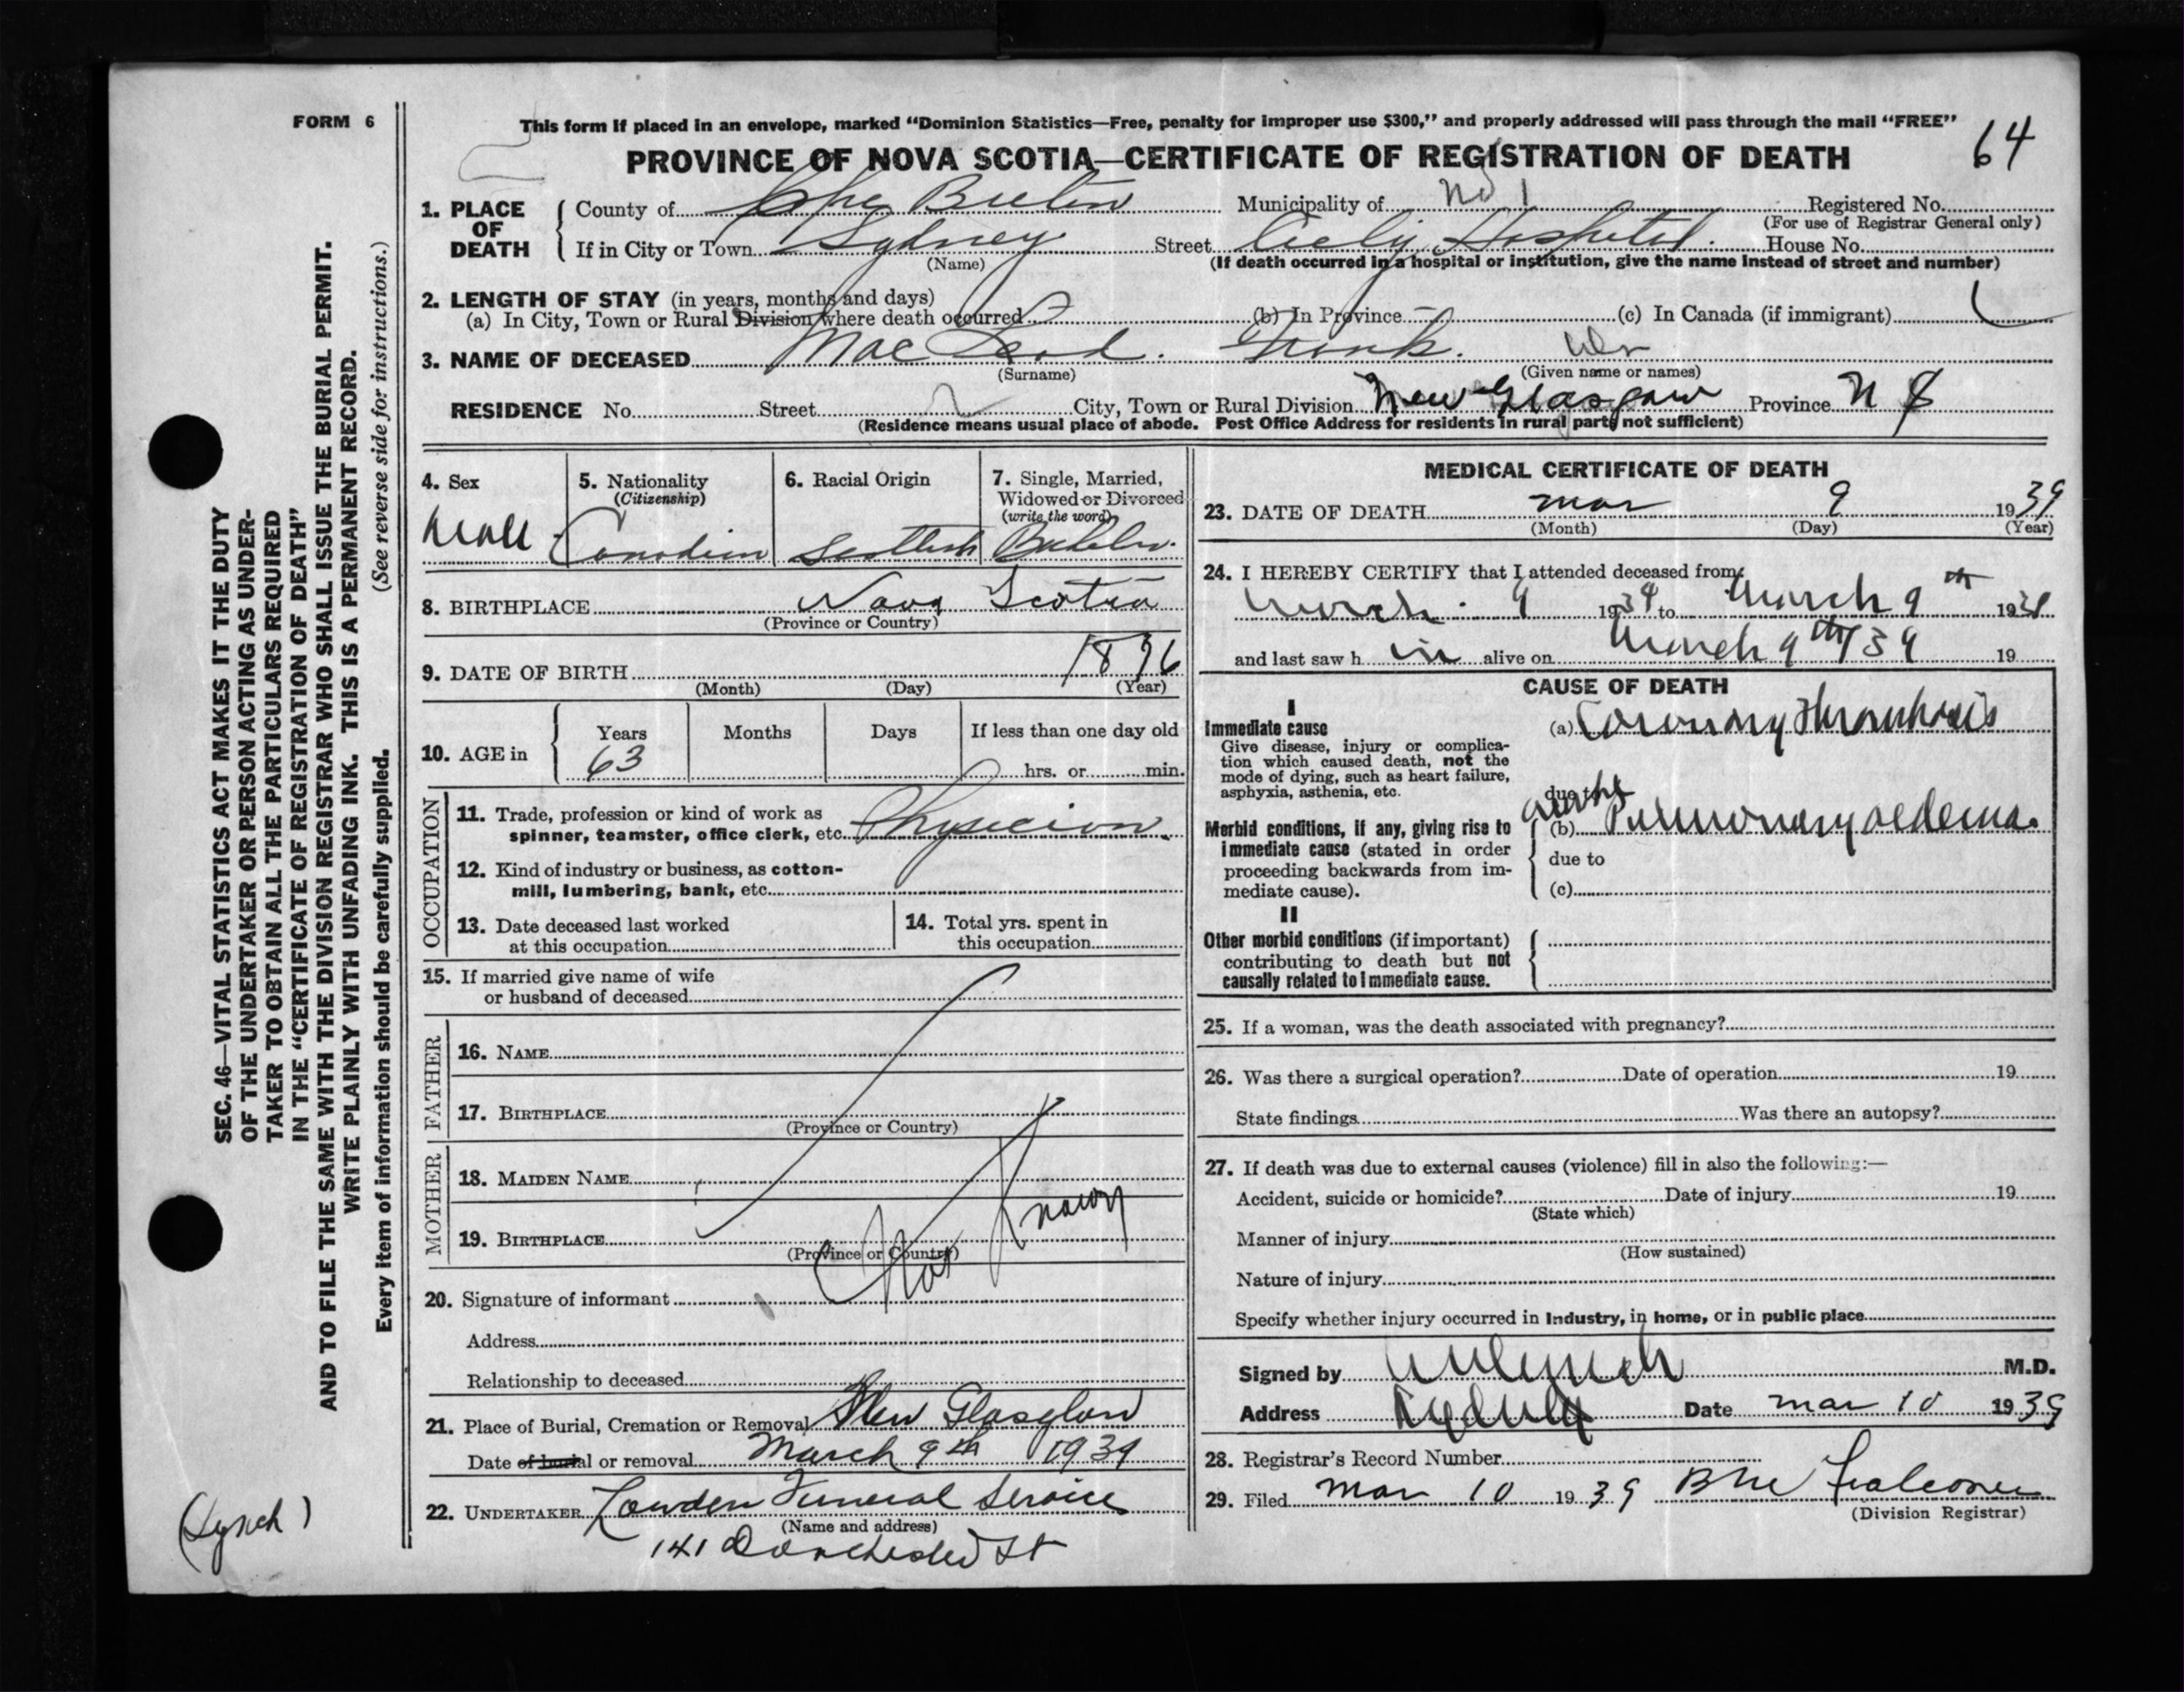 FORM 6
This form if placed in an envelope, marked "Dominion Statistics—Free, penalty for improper use $300," and properly addressed will pass through the mail "FREE"
64
PROVINCE OF NOVA SCOTIA—CERTIFICATE OF REGISTRATION OF DEATH
1. PLACE OF DEATH
County of Cape Breton Municipality of No 1 Registered No.
(For use of Registrar General only)
If in City or Town Sydney Street City Hospital. House No.
(Name) (If death occurred in a hospital or institution, give the name instead of street and number)
2. LENGTH OF STAY (in years, months and days)
(a) In City, Town or Rural Division where death occurred (b) In Province (c) In Canada (if immigrant)
3. NAME OF DECEASED MacLeod. Frank. Dr
(Surname) (Given name or names)
RESIDENCE No. Street City, Town or Rural Division New Glasgow Province N S
(Residence means usual place of abode. Post Office Address for residents in rural parts not sufficient)
4. Sex
Male
5. Nationality
(Citizenship)
Canadian
6. Racial Origin
Scottish
7. Single, Married,
Widowed or Divorced
(write the word)
Bachelor.
8. BIRTHPLACE Nova Scotia
(Province or Country)
9. DATE OF BIRTH 1876
(Month) (Day) (Year)
10. AGE in
Years Months Days If less than one day old
63 hrs. or min.
OCCUPATION
11. Trade, profession or kind of work as
spinner, teamster, office clerk, etc. Physician
12. Kind of industry or business, as cotton-
mill, lumbering, bank, etc.
13. Date deceased last worked
at this occupation
14. Total yrs. spent in
this occupation
15. If married give name of wife
or husband of deceased
FATHER
16. NAME
17. BIRTHPLACE
(Province or Country)
MOTHER
18. MAIDEN NAME
19. BIRTHPLACE
(Province or Country)
Not Known
20. Signature of informant
Address
Relationship to deceased
21. Place of Burial, Cremation or Removal New Glasglow
Date of burial or removal March 9th 1939
22. UNDERTAKER Lowden Funeral Service
(Name and address)
141 Dorchester St
MEDICAL CERTIFICATE OF DEATH
23. DATE OF DEATH Mar 9 1939
(Month) (Day) (Year)
24. I HEREBY CERTIFY that I attended deceased from:
March 9 1939 to March 9th 1939
and last saw him alive on March 9th/39 19
CAUSE OF DEATH
I
Immediate cause
Give disease, injury or complica-
tion which caused death, not the
mode of dying, such as heart failure,
asphyxia, asthenia, etc.
(a) Coronary Thrombosis
due to
Morbid conditions, if any, giving rise to
immediate cause (stated in order
proceeding backwards from im-
mediate cause).
acute
(b) Pulmonary oedema.
due to
(c)
II
Other morbid conditions (if important)
contributing to death but not
causally related to immediate cause.
25. If a woman, was the death associated with pregnancy?
26. Was there a surgical operation? Date of operation 19
State findings Was there an autopsy?
27. If death was due to external causes (violence) fill in also the following:—
Accident, suicide or homicide? Date of injury 19
(State which)
Manner of injury
(How sustained)
Nature of injury
Specify whether injury occurred in Industry, in home, or in public place
Signed by Lynch M.D.
Address Sydney Date Mar 10 1939
28. Registrar's Record Number
29. Filed Mar 10 1939 Falconer
(Division Registrar)
SEC. 46—VITAL STATISTICS ACT MAKES IT THE DUTY
OF THE UNDERTAKER OR PERSON ACTING AS UNDER-
TAKER TO OBTAIN ALL THE PARTICULARS REQUIRED
IN THE "CERTIFICATE OF REGISTRATION OF DEATH"
AND TO FILE THE SAME WITH THE DIVISION REGISTRAR WHO SHALL ISSUE THE BURIAL PERMIT.
WRITE PLAINLY WITH UNFADING INK. THIS IS A PERMANENT RECORD.
(See reverse side for instructions.)
Every item of information should be carefully supplied.
(Lynch)